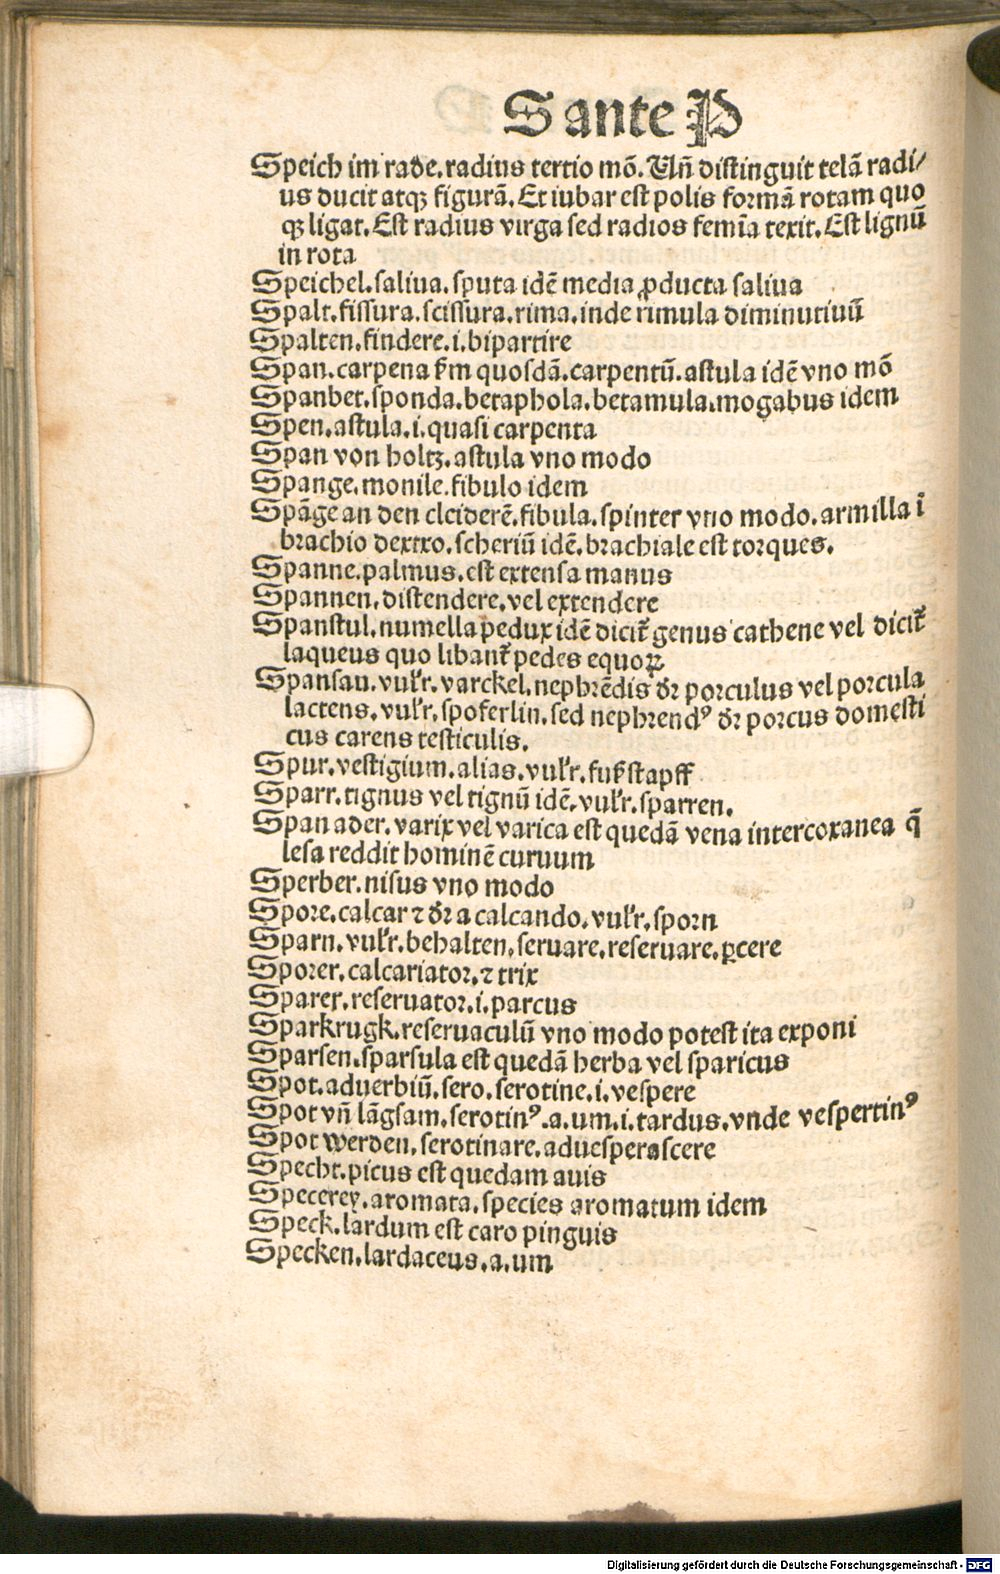 S ante P
Speich im rade.radius tertio mō. Vn̄ distinguit telā radi/
us ducit atqꝫ figurā.Et iubar est polis formā rotam quo
qꝫ ligat.Est radius virga sed radios femīa texit.Est lignū
in rota
Speichel.saliua.sputa idē media ꝓducta saliua
Spalt.fissura.scissura.rima.inde rimula diminutiuū
Spalten.findere.i.bipartire
Span.carpena ẜm quosdā.carpentū.astula idē vno mō
Spanbet.sponda.betaphola.betamula.mogabus idem
Spen.astula.i.quasi carpenta
Span von holtz.astula vno modo
Spange.monile.fibulo idem
Spāge an den clciderē.fibula.spinter vno modo.armilla ī
brachio dextro.scheriū idē.brachiale est torques.
Spanne.palmus.est extensa manus
Spannen.distendere.vel extendere
Spanstul.numella pedux idē dicit̄ genus cathene vel dicit̄
laqueus quo libant̄ pedes equoꝝ
Spansau.vul̓r.varckel.nephrēdis dr̄ porculus vel porcula
lactens.vul̓r.spoferlin.sed nephrendꝰ dr̄ porcus domesti
cus carens testiculis.
Spur.vestigium.alias.vul̓r.fußstapff
Sparr.tignus vel tignū idē.vul̓r.sparren.
Span ader.varix vel varica est quedā vena intercoxanea q̄
lesa reddit hominē curuum
Sperber.nisus vno modo
Spore.calcar ⁊ dr̄ a calcando.vul̓r.sporn
Sparn.vul̓r.behalten.seruare.reseruare.ꝑcere
Sporer.calcariator.⁊ trix
Sparer.reseruator.i.parcus
Sparkrugk.reseruaculū vno modo potest ita exponi
Sparsen.sparsula est quedā herba vel sparicus
Spot.aduerbiū.sero.serotine.i.vespere
Spot vn̄ lāgsam.serotinꝰ.a.um.i.tardus.vnde vespertinꝰ
Spot werden.serotinare.aduesperascere
Specht.picus est quedam auis
Specerey.aromata.species aromatum idem
Speck.lardum est caro pinguis
Specken.lardaceus.a.um
Digitalisierung gefördert durch die Deutsche Forschungsgemeinschaft - DFG